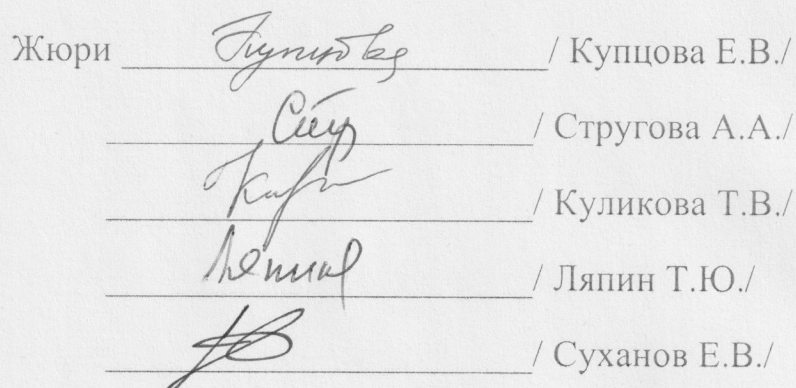 Жюри Купцова / Купцова Е.В./
/ Стругова А.А./
/ Куликова Т.В./
/ Ляпин Т.Ю./
/ Суханов Е.В./